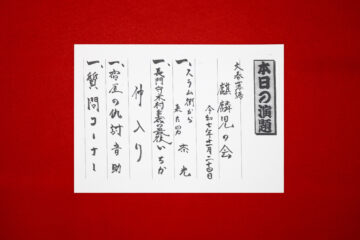 本日の演題
大会落語
麒麟児の会
令和七年十二月二十四日
一、スラム街から来た男 奈光
一、長門守木村重成の最後 いちか
仲入り
一、宿屋の仇討 音助
一、質問コーナー